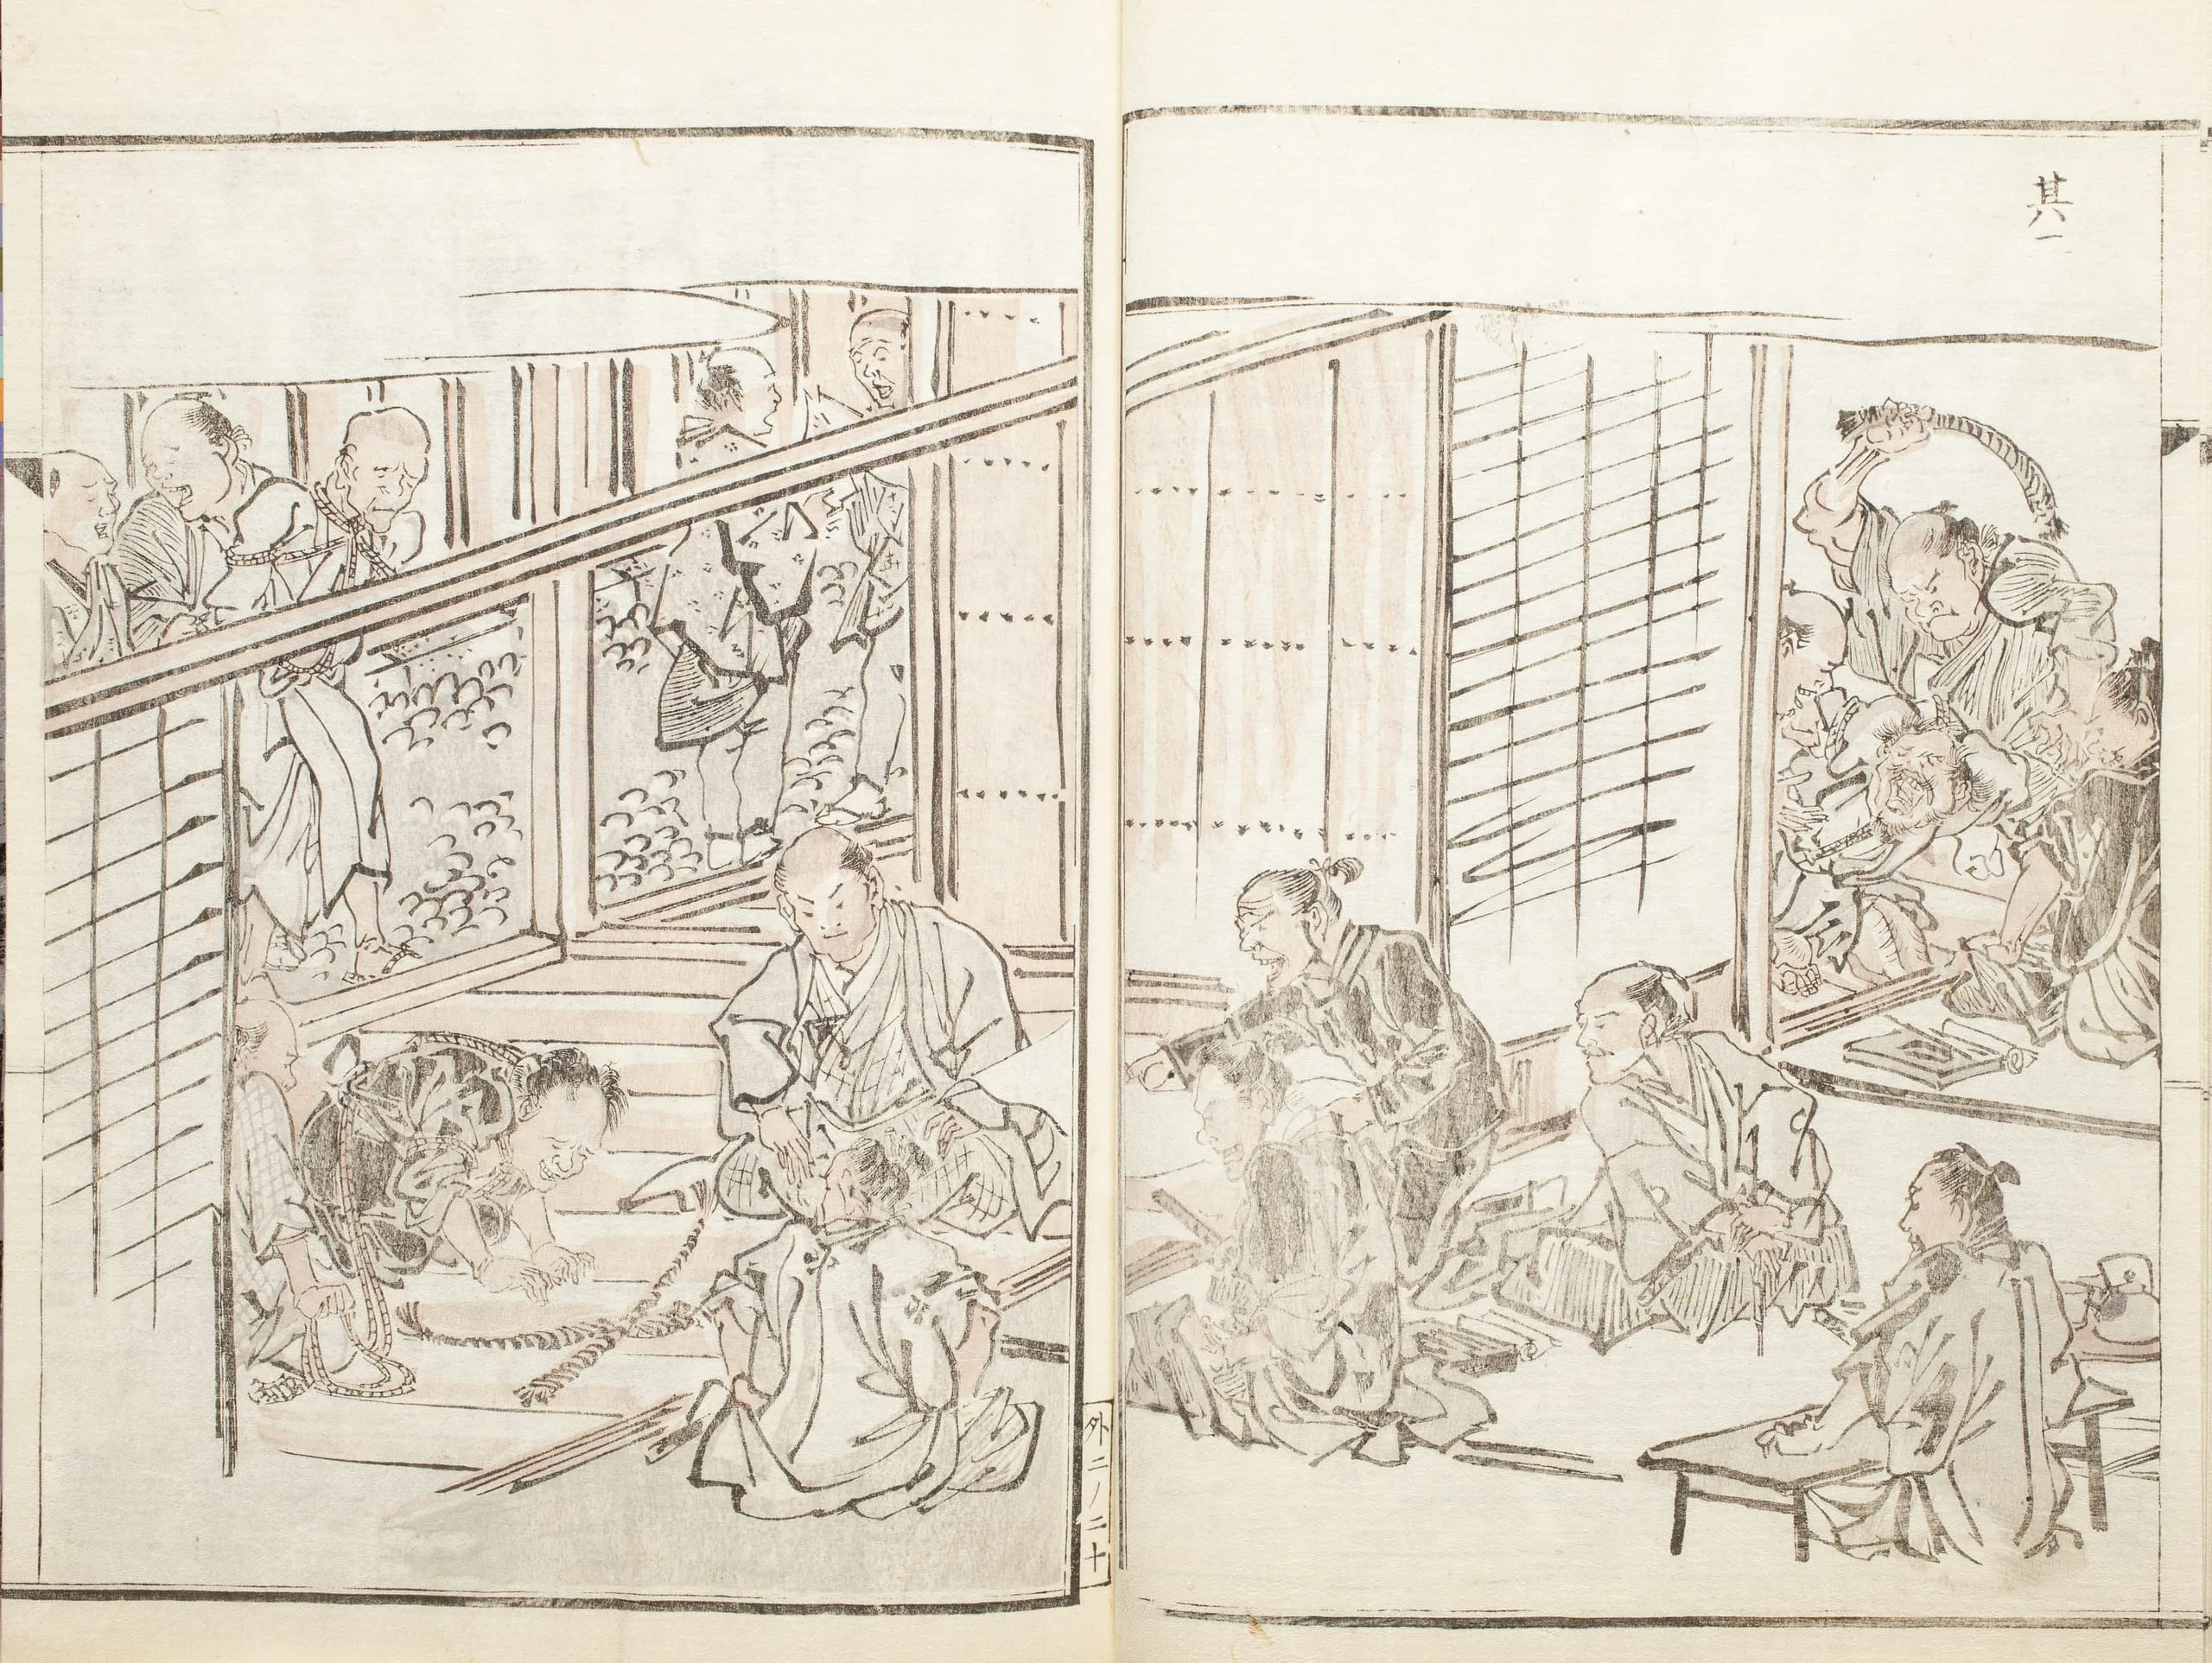 其一
外二ノ二十